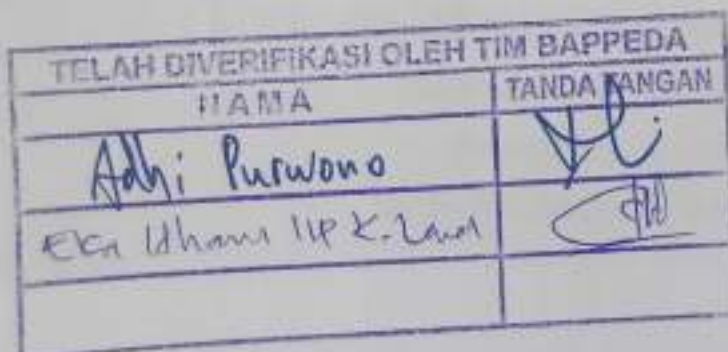 TELAH DIVERIFIKASI OLEH TIM BAPPEDA
NAMA TANDA TANGAN
Adhi Purwono
Eka